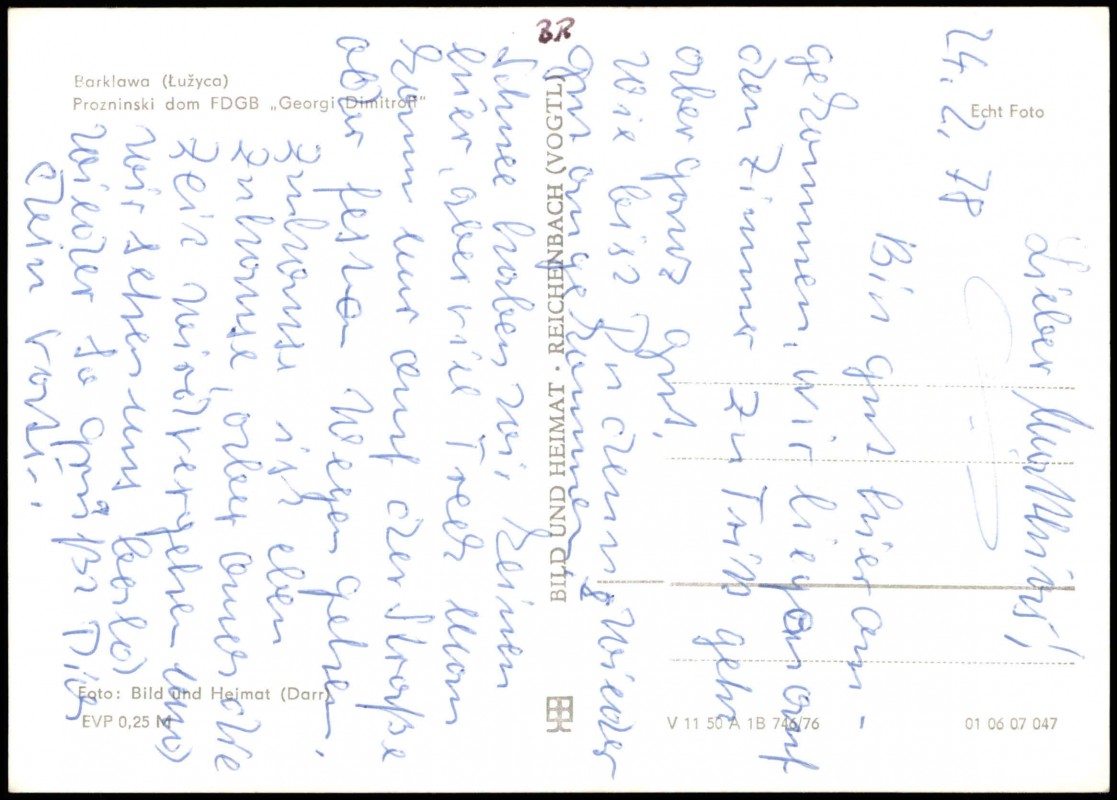 BR
Barklawa (Łužyca)
Prozninski dom FDGB „Georgi Dimitroff“
Echt Foto
BILD UND HEIMAT · REICHENBACH (VOGTL)
Foto: Bild und Heimat (Darr)
EVP 0,25 M
V 11 50 A 1B 746/76
01 06 07 047
24. 2. 78
Lieber
Bin gut hier an-
gekommen, wir liegen auf
den Zimmer zu Tritt geht
aber ganz gut,
Wie bist Du denn wieder
gut angekommen
Schnee haben wir keinen
hier, aber viel Treck man
kann nur auf der Straße
oder festen Wegen gehen.
Zuhause ist eben
Zuhause, aber auch die
Zeit wird vergehen und
wir sehen uns bald
wieder so grüßt Dich
Dein